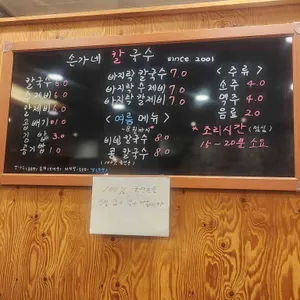 손가네 칼국수 since 2001
칼국수 6.0
수제비 6.0
칼제비 6.0
곱배기 1.0
김밥 3.0
공기밥 1.0
바지락 칼국수 7.0
바지락 수제비 7.0
바지락 칼제비 7.0
<여름 메뉴>
비빔칼국수 8.0
콩칼국수 8.0
<주류>
소주 4.0
맥주 4.0
음료 2.0
* 조리시간 (점심)
15~20분 소요
100%